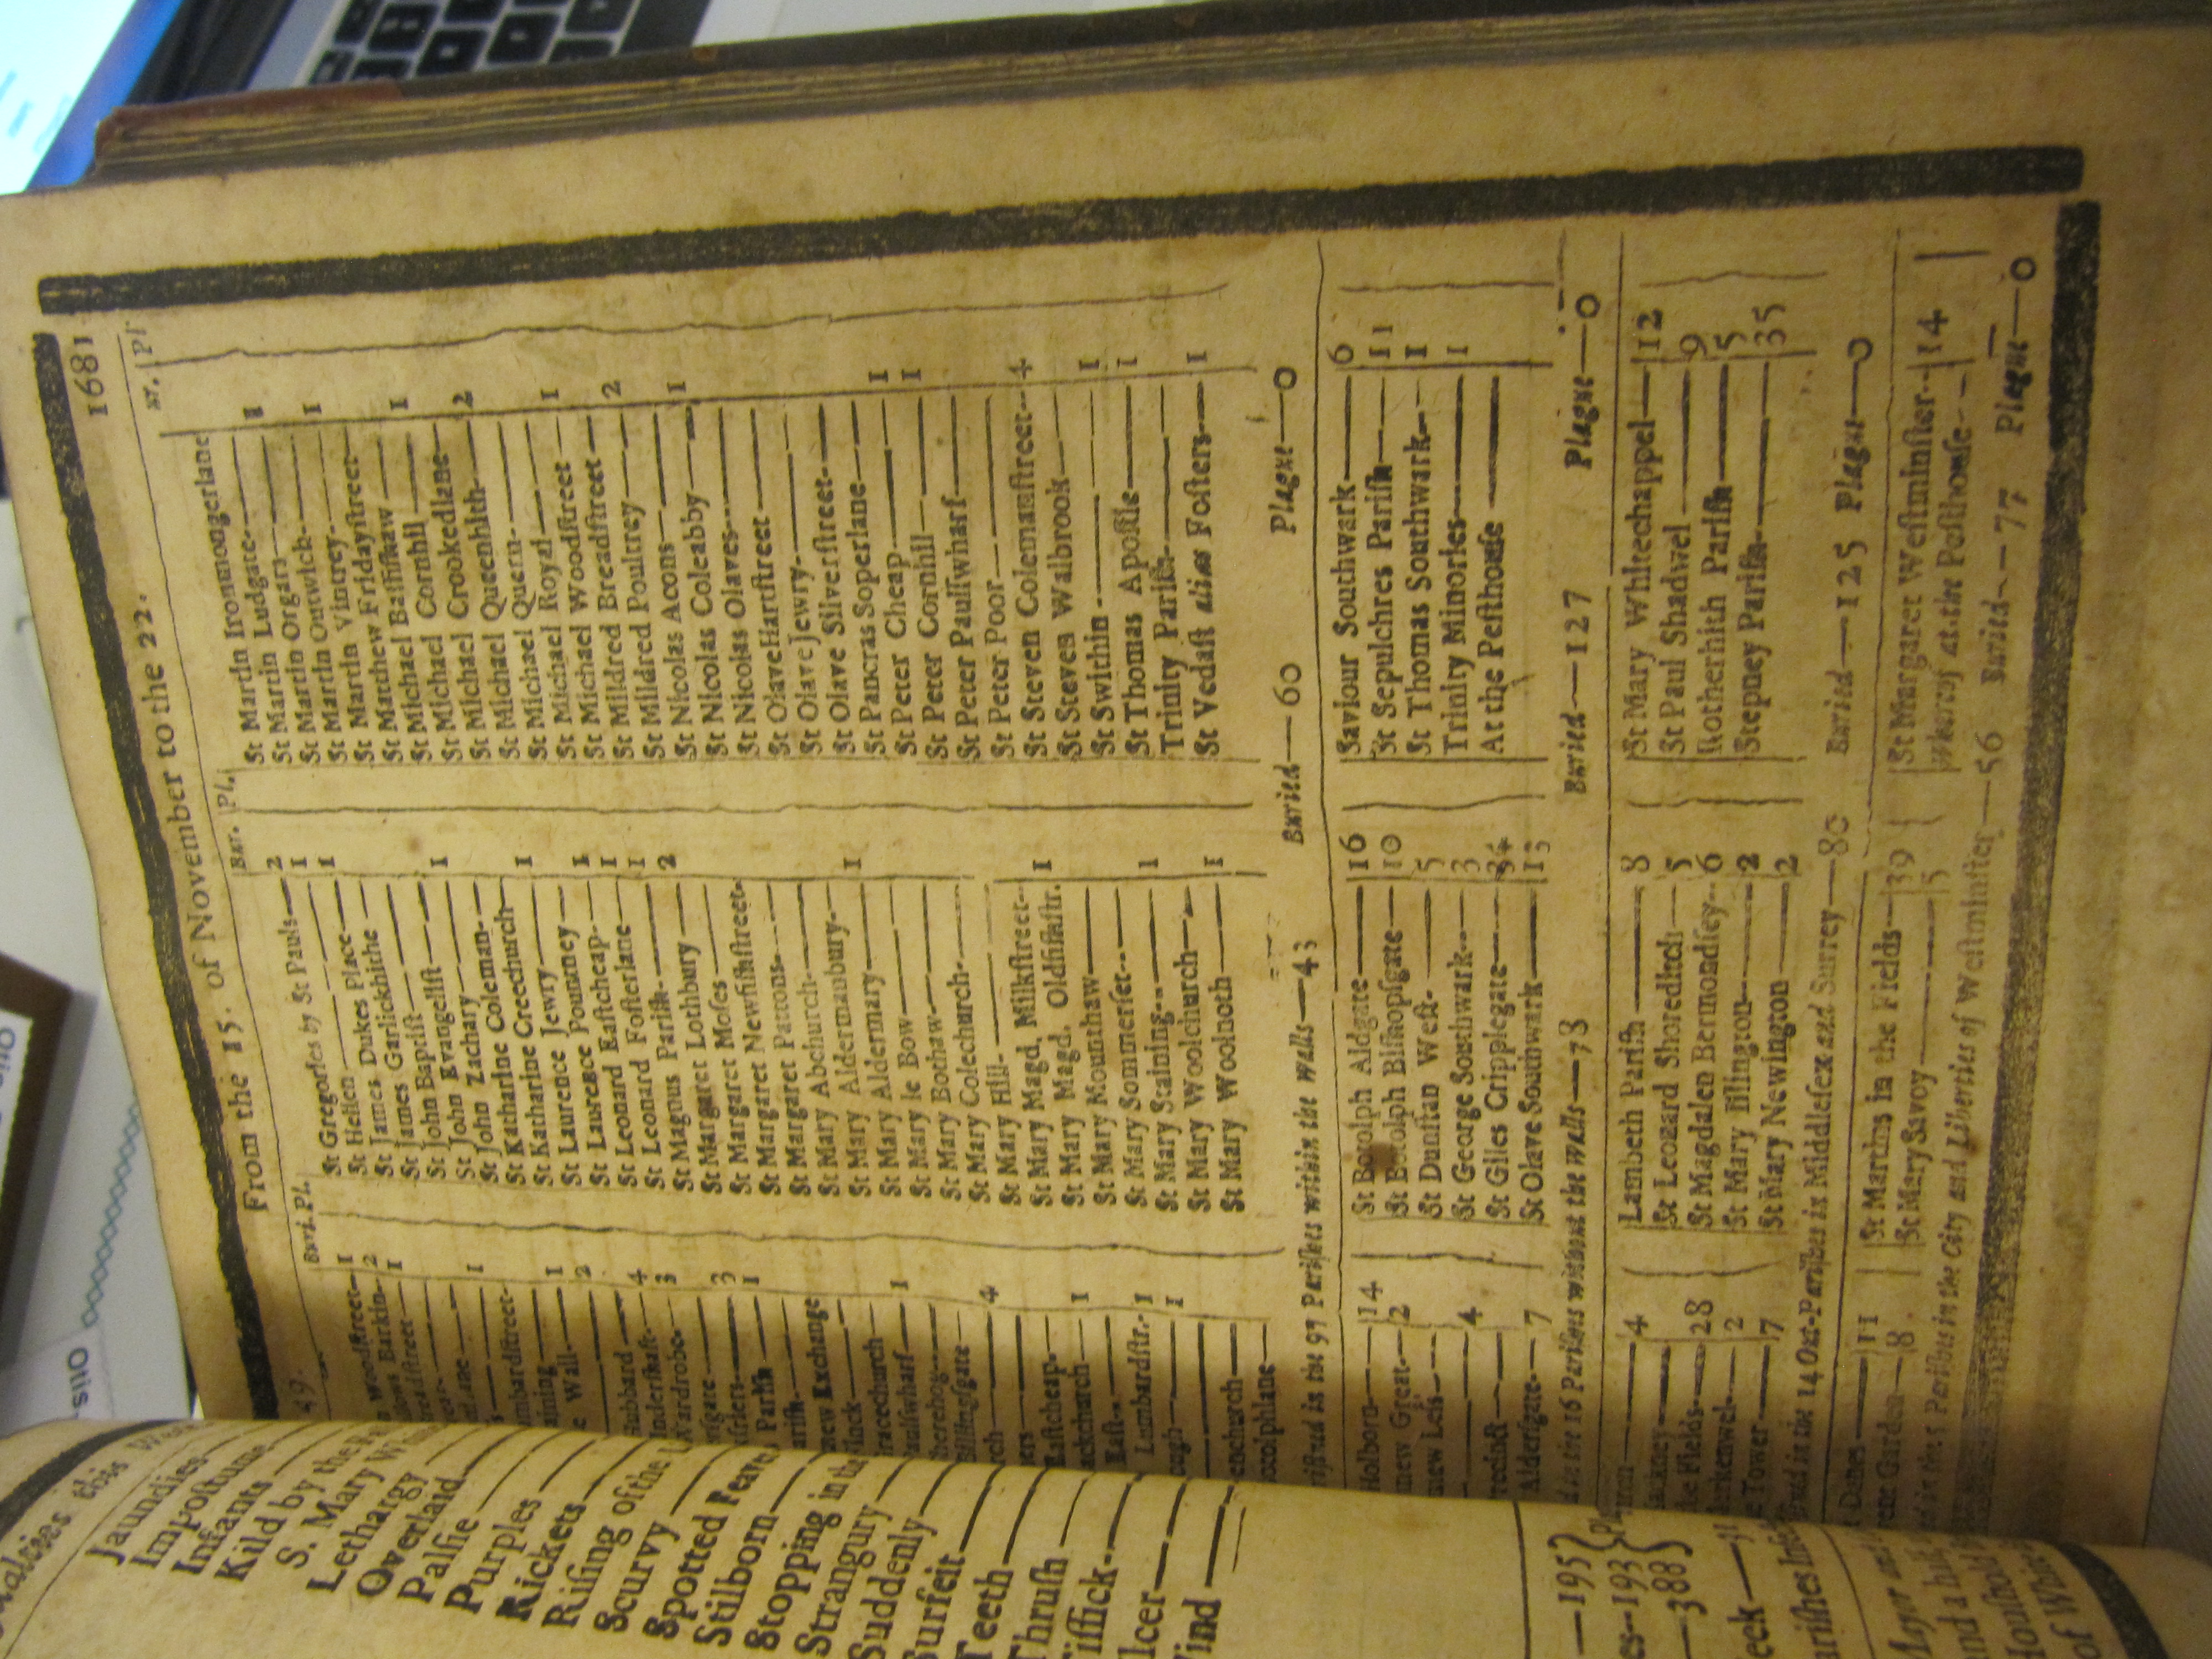 1681
From the 15. of November to the 22.
49.
Buri. Pl.
Bur. Pl.
Pl
Woodstreet-1
Barkin-2
1
1
mbardstreet-
aining-1
e Wall-2
Hubbard-4
Undershaft-3
Wardrobe-
3
Parish-1
new Exchange
racechurch
aulswharf-1
herehog-
Billingsgate-
rch-4
Eastcheap-
ackchurch-1
East-
Lombardstr.-1
ough-1
enchurch-
otolphlane-
St Gregories by St Pauls-2
St Hellen-1
St James Dukes Place-1
St James Garlickhithe-
St John Baptist-
St John Evangelist-1
St John Zachary-
St Katharine Coleman-
St Katharine Creechurch-1
St Laurence Jewry-
St Laurence Pountney-1
St Leonard Eastcheap-1
St Leonard Fosterlane-1
St Magnus Parish-2
St Margaret Lothbury-
St Margaret Moses-
St Margaret Newfishstreet-
St Margaret Pattons-
St Mary Abchurch-
St Mary Aldermanbury-1
St Mary Aldermary-
St Mary le Bow-
St Mary Bothaw-
St Mary Colechurch-
St Mary Hill-
St Mary Magd. Milkstreet-1
St Mary Magd. Oldfishstr.
St Mary Mounthaw-
St Mary Sommerset-
St Mary Staining-1
St Mary Woolchurch-
St Mary Woolnoth-1
St Martin Ironmongerlane
St Martin Ludgate-1
St Martin Orgars-
St Martin Outwich-1
St Martin Vintrey-
St Matthew Fridaystreet-
St Michael Bassishaw-1
St Michael Cornhil-
St Michael Crookedlane-2
St Michael Queenhith-
St Michael Quern-
St Michael Royal-1
St Michael Woodstreet-
St Mildred Breadstreet-2
St Mildred Poultrey-
St Nicolas Acons-1
St Nicolas Coleabby-
St Nicolas Olaves-
St Olave Hartstreet-
St Olave Jewry-
St Olave Silverstreet-
St Pancras Soperlane-1
St Peter Cheap-1
St Peter Cornhil-
St Peter Paulswharf-
St Peter Poor-
St Steven Colemanstreet-4
St Steven Walbrook-
St Swithin-1
St Thomas Apostle-1
Trinity Parish-
St Vedast alias Fosters-1
ristned in the 97 Parishes within the walls-43 Buried-60 Plague-0
Holborn-14
new Great-2
new Less-
4
recinct-
Aldersgate-7
St Botolph Aldgate-16
St Botolph Bishopsgate-10
St Dunstan West-5
St George Southwark-3
St Giles Cripplegate-34
St Olave Southwark-13
Saviour Southwark-6
St Sepulchres Parish-11
St Thomas Southwark-1
Trinity Minories-1
At the Pesthouse-
d in the 16 Parishes without the Walls-78 Buried-127 Plague-0
4
ackney-
he Fields-28
lerkenwel-2
e Tower-7
Lambeth Parish-8
St Leonard Shoreditch-5
St Magdalen Bermondsey-6
St Mary Islington-2
St Mary Newington-2
St Mary Whitechappel-12
St Paul Shadwel-9
Rotherhith Parish-5
Stepney Parish-35
stned in the 14 Out-Parishes in Middlesex and Surrey-80 Buried-125 Plague-0
Danes-11
Garden-8
St Martins in the Fields-39
St Mary Savoy-5
St Margaret Westminster-14
Whereof at the Pesthouse-
ed in the 5 Parishes in the City and Liberties of Westminster-56 Buried-77 Plague-0
sualties this
Jaundies
Impostume
Infants
Kild by the
S. Mary
Lethargy
Overlaid
Palsie
Purples
Rickets
Rising of the
Scurvy
Spotted Feaver
Stilborn
Stopping in the
Strangury
Suddenly
Surfeit
Teeth
Thrush
Tissick
lcer
ind
-195
es-193
-388
eek
arishes Inf
Mayor and
and a half
Houshold
of Whi
Otis